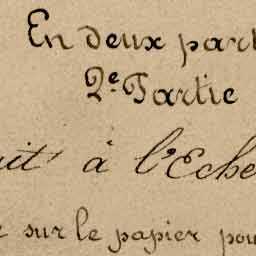 En deux part
2e Partie
uit à l'Eche
sur le papier pou